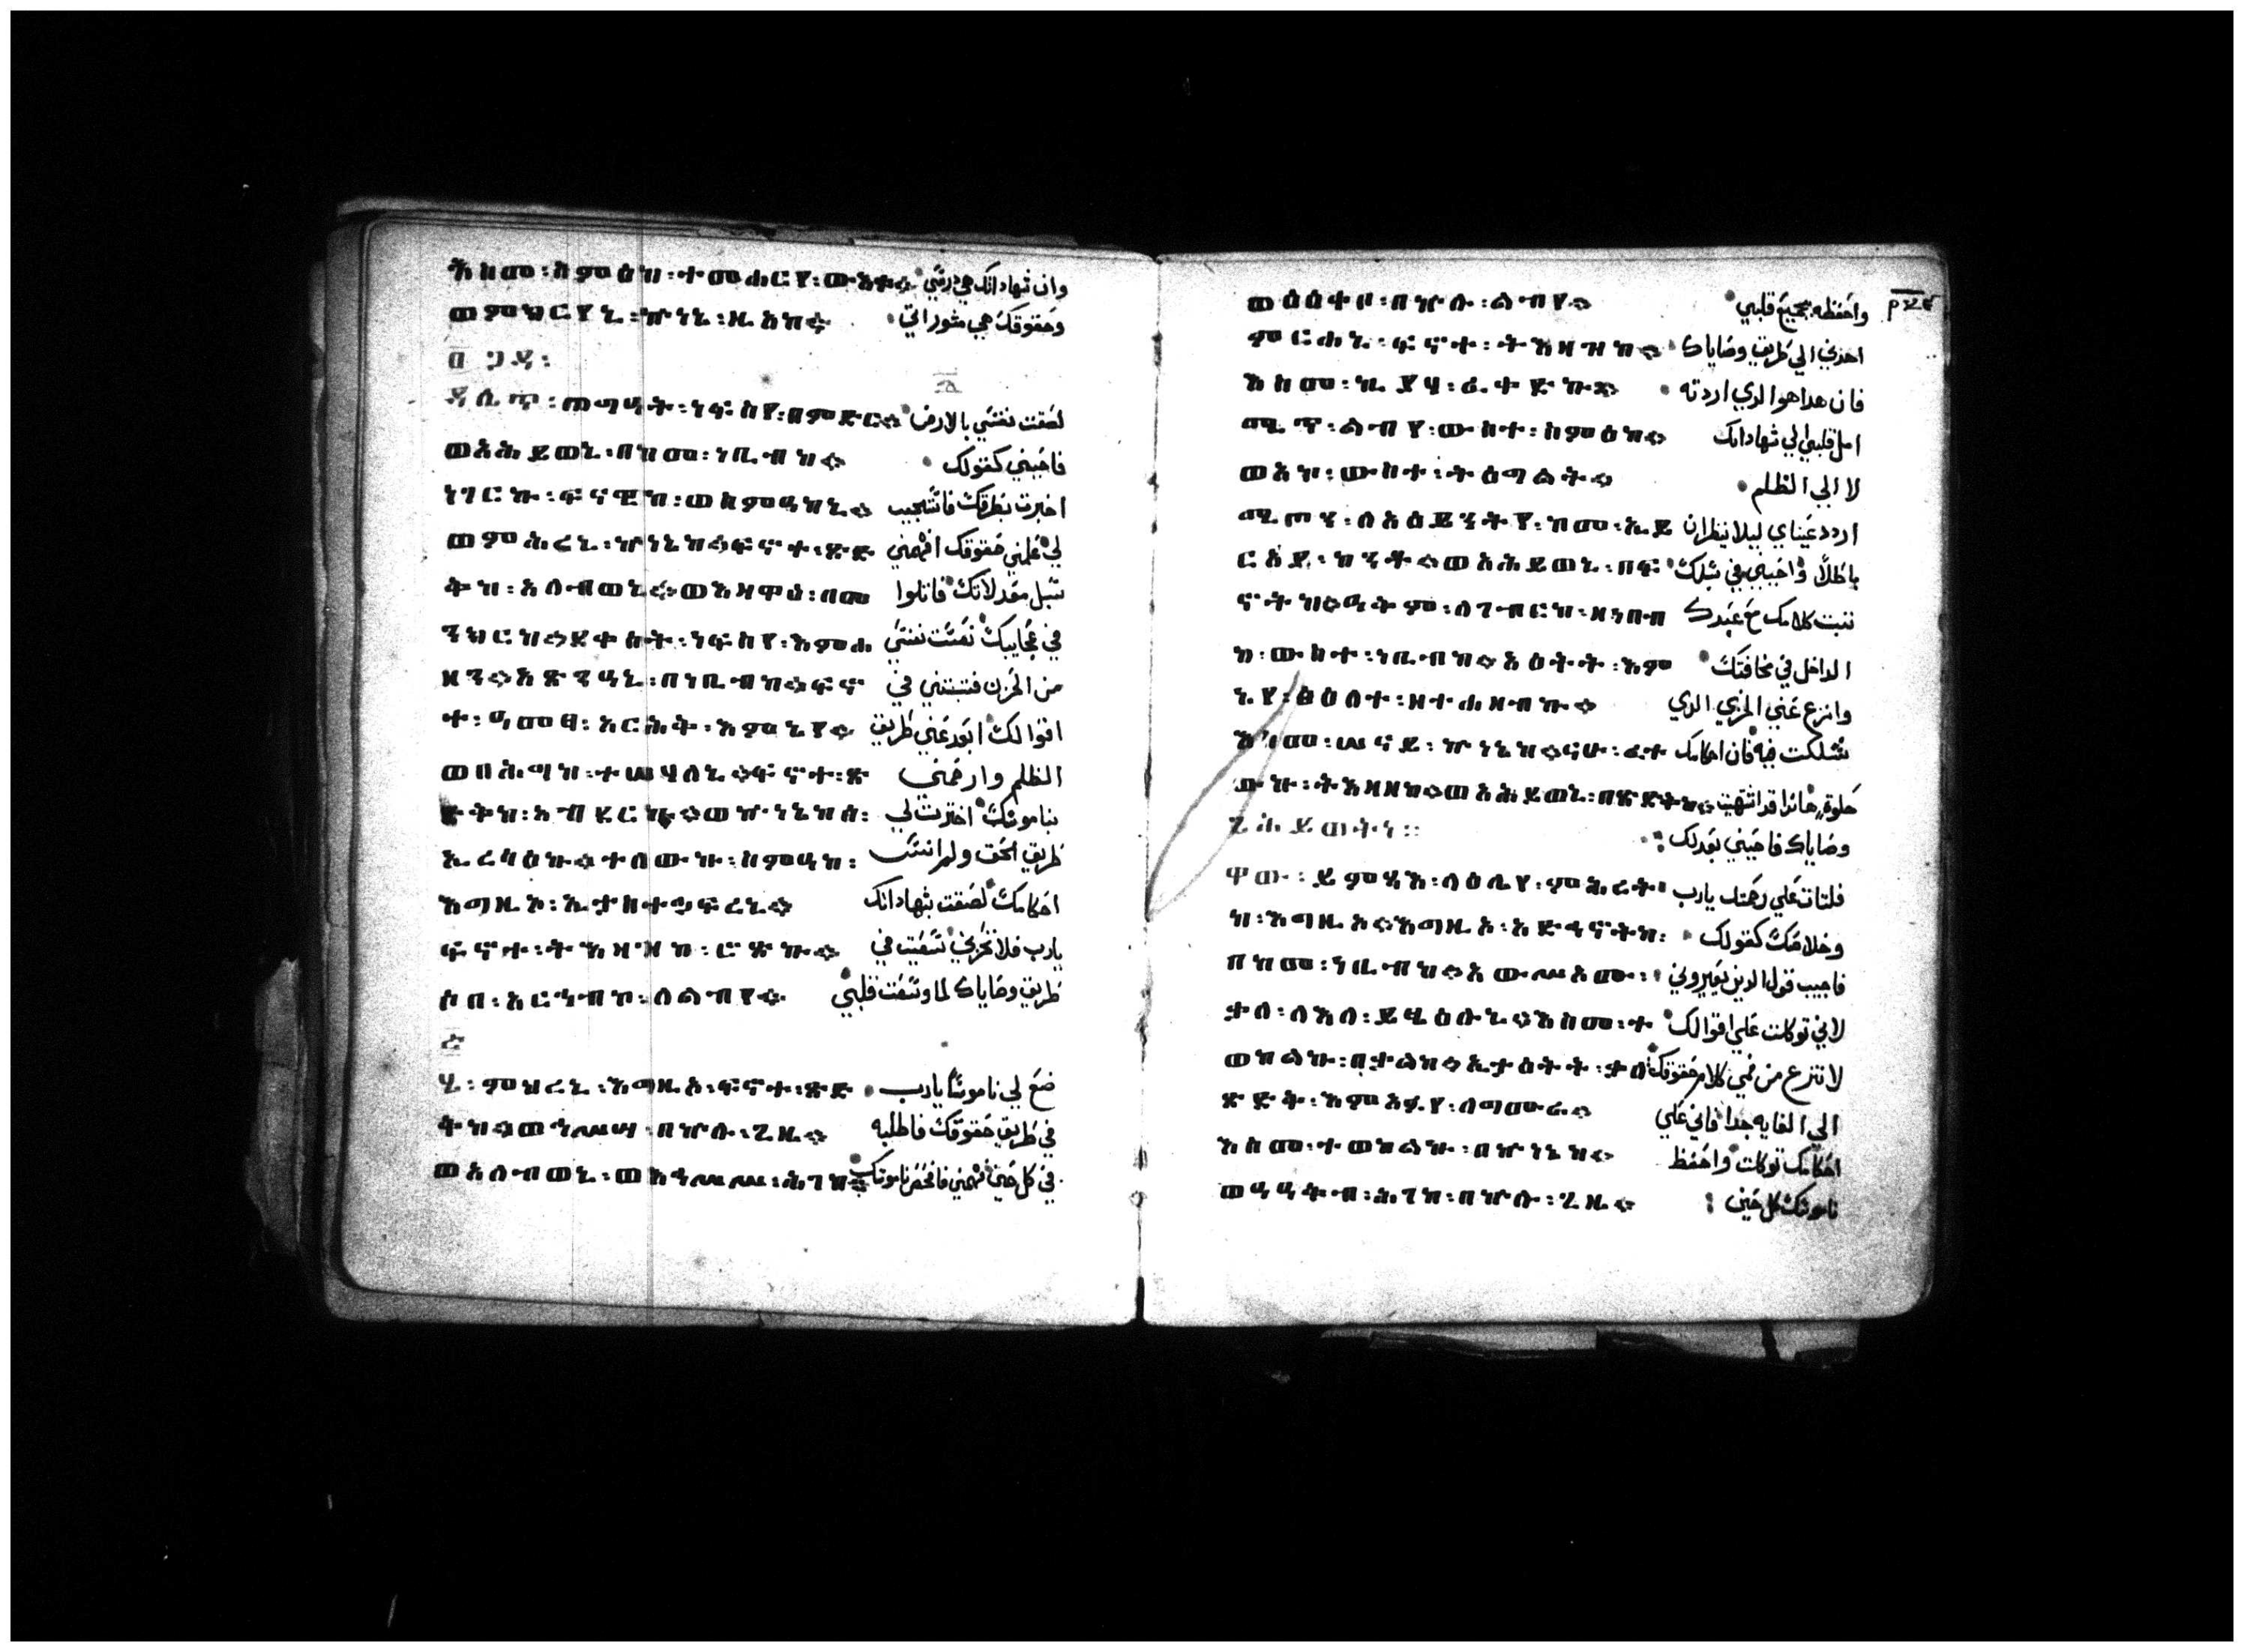 እስመ፡ስምዕከ፡ተመሐርየ፡ውእቱ። وان شهاداتك هي درسي
ወምክርየኒ፡ኵነኔ፡ዚአከ። وحقوقك هي مشوراتي
ዳሌጥ፡ጠግዐት፡ነፍስየ፡በምድር። لصقت نفسي بالارض
ወአሕይወኒ፡በከመ፡ነቢብከ። فاحيني كقولك
ነገርኩ፡ፍናዊከ፡ወሰምዓከኒ። اخبرت بطرقك فاستجيب
ወምሕረኒ፡ኵነኔከ።ፍኖተ፡ጽድ لي علمني حقوقك افهمني
ቅከ፡አለብወኒ።ወእዛዋዕ፡በመ سبل عدلاتك فاتلوا
ንክርከ።ደቀሰት፡ነፍስየ፡እምሐ في عجايبك نعست نفسي
ዘን።አጽንዓኒ፡በነቢብከ።ፍኖ من الحزن فثبتني في
ተ፡ዓመፃ፡አርሕቅ፡እምኔየ። اقوالك ابعد عني طريق
ወበሕግከ፡ተሠሃለኒ።ፍኖተ፡ጽ الظلم وارحمني
ድቅከ፡አብደርኩ።ወኵነኔከሰ፡ بناموسك اخترت لي
ኢረሳዕኩ።ተለውኩ፡ስምዓከ፡ طريق الحق ولم انسَ
እግዚኦ፡ኢታስተኃፍረኒ። احكامك لصقت بشهاداتك
ፍኖተ፡ትእዛዝከ፡ሮጽኩ። يارب فلا تخزني سعيت في
ሶበ፡አርኀብከ፡ለልብየ። طريق وصاياك لما وسعت قلبي
ሄ፡ምህረኒ፡እግዚኦ፡ፍኖተ፡ጽድ ضع لي ناموسا يارب
ቅከ።ወኀሠሣ፡በኵሉ፡ጊዜ። في طريق حقوقك فاطلبه
ወአለብወኒ፡ወእኀሥሥ፡ሕገከ። في كل حين فهمني فافحص ناموسك
ወዕዕቀቦ፡በኵሉ፡ልብየ። واحفظه بجميع قلبي
ምርሐኒ፡ፍኖተ፡ትእዛዝከ። اهدني الي طريق وصاياك
እስመ፡ኪያሃ፡ፈቀድኩ። فان هدا هو الدي اردته
ሚጥ፡ልብየ፡ውስተ፡ስምዕከ። امل قلبي الي شهاداتك
ወአኮ፡ውስተ፡ትዕግልት። لا الي الظلم
ሚጦን፡ለአዕይንትየ፡ከመ፡ኢይ اردد عيناي ليلا ينظران
ርአይ፡ከንቶ።ወአሕይወኒ፡በፍ باطلا واحييني في سبلك
ኖትከ።ዓቅም፡ለገብርከ፡ዘነበብ ثبت كلامك مع عبدك
ከ፡ውስተ፡ነቢብከ።አዕትት፡እም الداخل في مخافتك
ኔየ፡ፅዕለተ፡ዘተሐዘብኩ። وانزع عني الخزي الدي
እስመ፡ሠናይ፡ኵነኔከ።ናሁ፡ፈተ شككت فيه فان احكامك
ውኩ፡ትእዛዘከ።ወአሕይወኒ፡በጽድቅከ። حلوة هانذا قد اشتهيت
ጊሕይወትነ፡፡ وصاياك فاحيني بعدلك
ዋው፡ይምጻእ፡ለዕሌየ፡ምሕረት فلتات علي رحمتك يارب
ከ፡እግዚኦ።እግዚኦ፡አድኅኖትከ፡ وخلاصك كقولك
በከመ፡ነቢብከ።አውሥኦሙ፡ فاجيب قول الدين يعيروني
ቃለ፡ለእለ፡ይፄዕሉኒ።እስመ፡ተ لاني توكلت علي اقوالك
ወከልኩ፡በቃልከ።ኢታዕትት፡ቃለ لا تنزع من فمي كلام حقوقك
ጽድቅ፡እምአፉየ፡ለግሙራ። الي الغايه جدا فاني علي
እስመ፡ተወከልኩ፡በኵነኔከ። احكامك توكلت واحفظ
ወዓዓቅብ፡ሕገከ፡በኵሉ፡ጊዜ። ناموسك كل حين